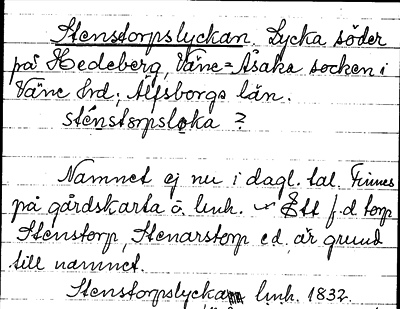 Stenstorpslyckan. Lycka söder
på Hedeberg, Väne=Åsaka socken i
Väne hrd; Älfsborgs län.
sténstorpsloka ?
Namnet ej nu i dagl. tal. Finnes
på gårdskarta å lmh. Ett f.d torp
Stenstorp, Stenarstorp e d. är grund
till namnet.
Stenstorpslyckan lmh. 1832.